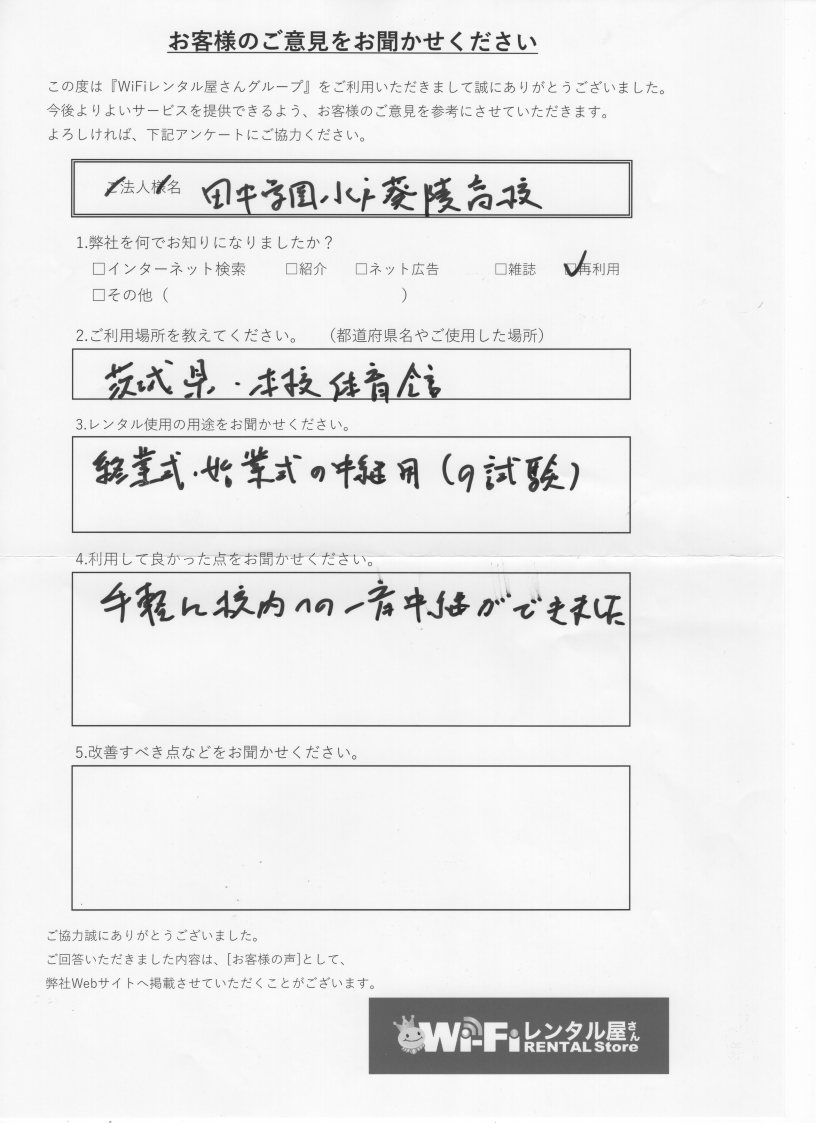 お客様のご意見をお聞かせください
この度は『WiFiレンタル屋さんグループ』をご利用いただきまして誠にありがとうございました。
今後よりよいサービスを提供できるよう、お客様のご意見を参考にさせていただきます。
よろしければ、下記アンケートにご協力ください。
ご法人様名 田中学園水戸葵陵高校
1.弊社を何でお知りになりましたか？
□インターネット検索 □紹介 □ネット広告 □雑誌 ☑再利用
□その他（ ）
2.ご利用場所を教えてください。 （都道府県名やご使用した場所）
茨城県・本校体育館
3.レンタル使用の用途をお聞かせください。
終業式・始業式の中継用（の試験）
4.利用して良かった点をお聞かせください。
手軽に校内への一斉中継ができました
5.改善すべき点などをお聞かせください。
ご協力誠にありがとうございました。
ご回答いただきました内容は、[お客様の声]として、
弊社Webサイトへ掲載させていただくことがございます。
Wi-Fiレンタル屋さん
RENTAL Store